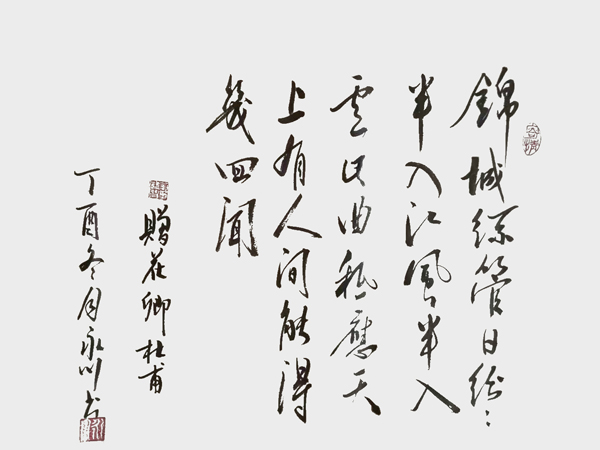 錦城絲管日紛〻
半入江風半入
雲此曲秖應天
上有人間能得
幾回聞
贈花卿 杜甫
丁酉冬月永川书